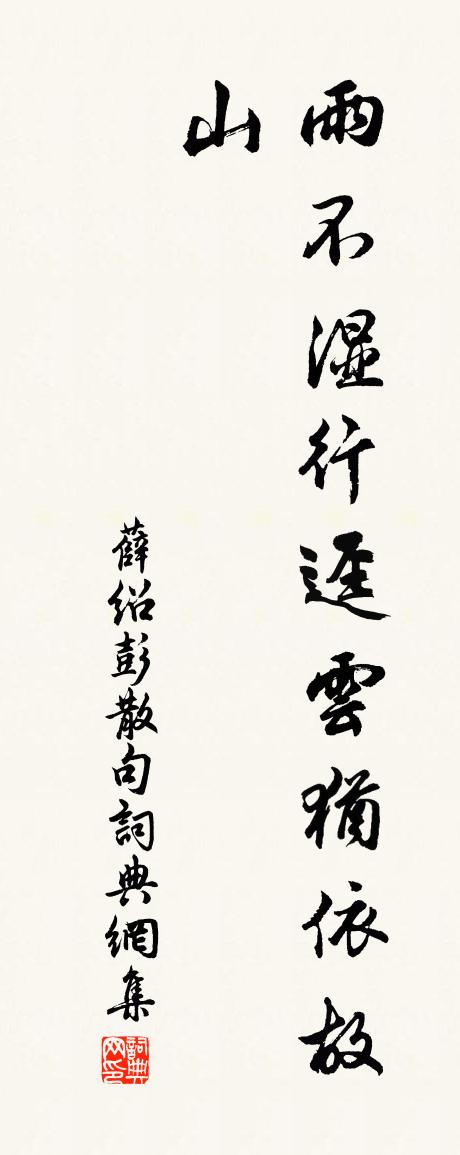 雨不濕行逕雲猶依故
山
薛紹彭散句詞典網集
詞典网印